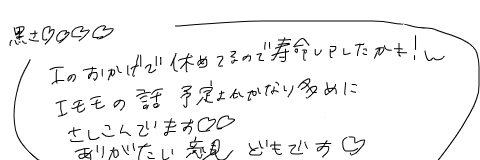 黒さ♡♡♡♡
Iのおかげで休めてるので寿命したかも!ん
Iモモの話 予定よりかなり多めに
さしこんでます♡♡
ありがたい意見 どもです♡